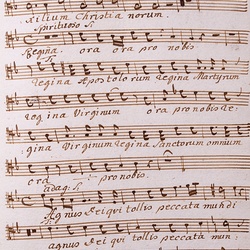 xilium Christia norum.
Spirituoso S.
Regina. ora ora pro nobis
Regina Apostolo rum regina Martyrum
regina Virginum ora pro nobis re:
gina Virginum regina Sanctorum omnium
ora pro nobis.
adag. S.
Agnus dei qui tollis peccata mundi
agnus dei qui tollis peccata mun: